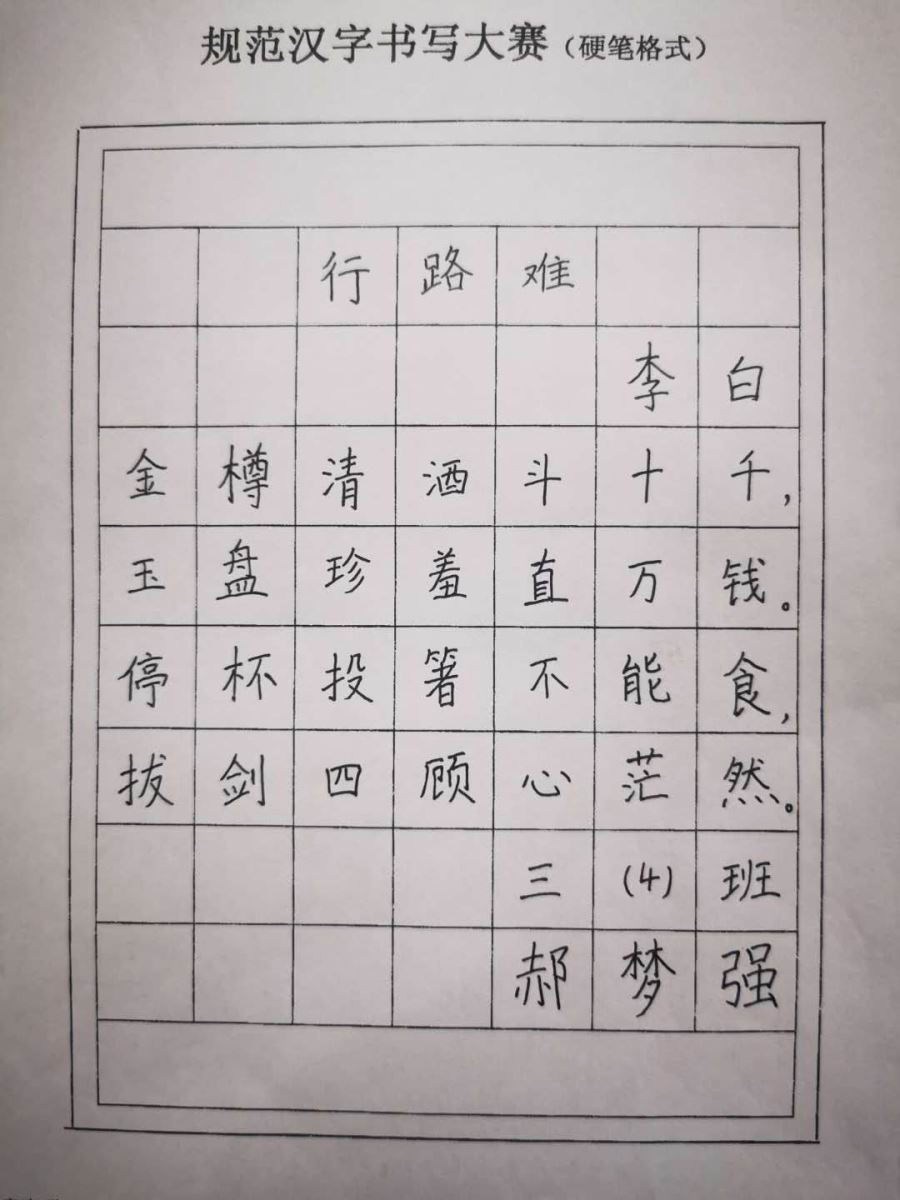 规范汉字书写大赛（硬笔格式）
行路难
李白
金樽清酒斗十千，
玉盘珍羞直万钱。
停杯投箸不能食，
拔剑四顾心茫然。
三(4)班
郝梦强